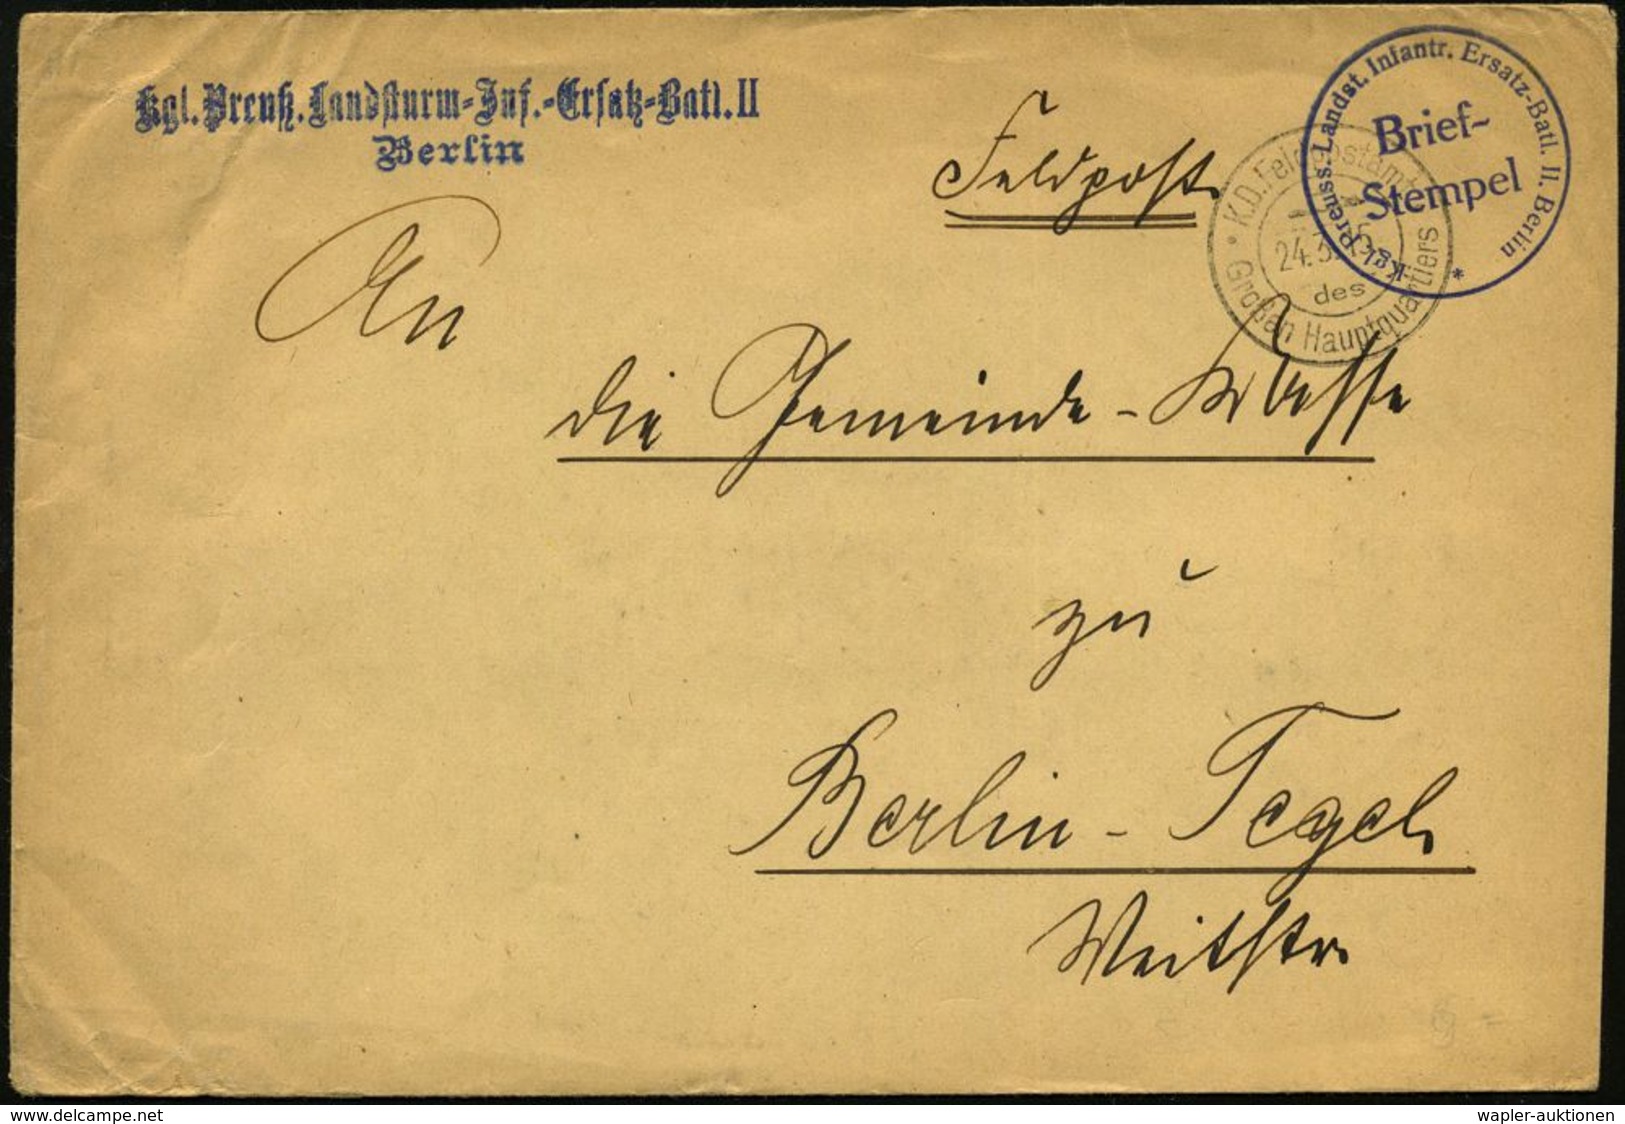 Kgl. Preuß. Landsturm-Inf.-Ersatz-Batl. II
Berlin
Feldpost.
Kgl. Preuss. Landst. Infantr. Ersatz-Batl. II. Berlin *
Brief-
Stempel
K.D. Feldpostamt
24.3.
des
Großen Hauptquartiers
An
die Gemeinde-Kasse
zu
Berlin-Tegel.
Veitstr.
www.delcampe.net
wapler-auktionen